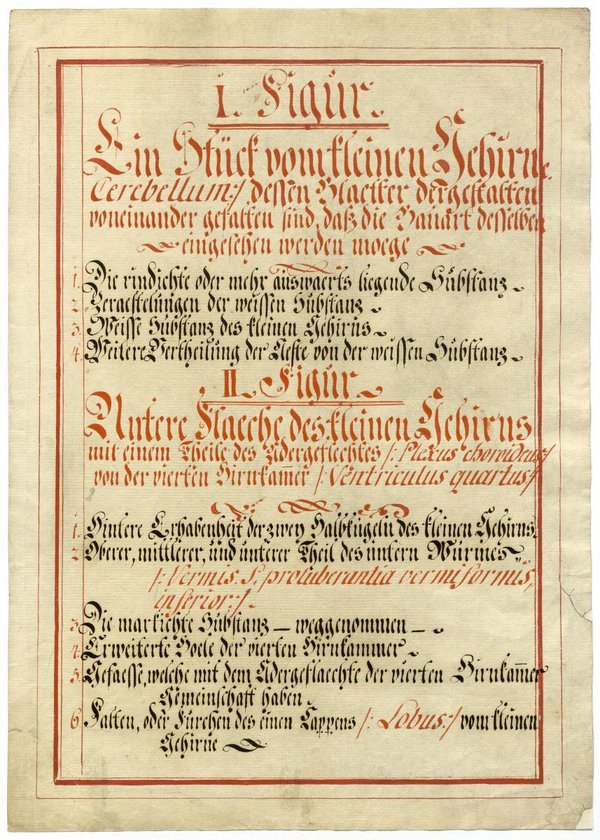 I. Figur.
Ein Stück vom kleinen Gehirne.
Cerebellum:/ dessen Blaetter dergestalten
voneinander gefalten sind, daß die Bauart desselben
eingesehen werden moege
1. Die rindichte oder mehr auswaerts liegende Substanz
2. Veraestelungen der weissen Substanz
3. Weisse Substanz des kleinen Gehirns
4. Weitere Vertheilung der Aeste von der weissen Substanz
II. Figur.
Untere Flaeche des kleinen Gehirns
mit einem Theile des Adergeflechtes /: Plexus choroideus/
von der vierten Hirnkam̅er /: Ventriculus quartus/
1. Hintere Erhabenheit der zwey Halbkugeln des kleinen Gehirns.
2. Oberer, mittlerer, und unterer Theil des untern Wurmes
/: Vermis. S. protuberantia vermiformis,
inferior:/.
3. Die markichte Substanz — weggenommen —
4. Erweiterte Hoele der vierten Hirnkammer
5. Gefaesse, welche mit dem Adergeflaechte der vierten Hirnkam̅er
Gemeinschaft haben
6. Falten, oder Furchen des einen Lappens /: Lobus:/ vom kleinen
Gehirne